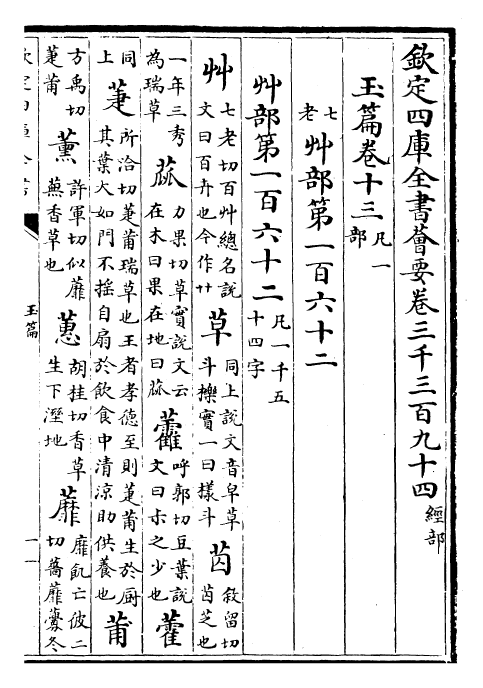 欽定四庫全書薈要卷三千三百九十四 經部
玉篇卷十三 凡一部
七老 艸部第一百六十二
艸部第一百六十二 凡一千五十四字
艸 七老切百艸總名說文曰百卉也今作艹 草 同上說文音皁草斗櫟實一曰樣斗 苬 敘留切苬芝也
一年三秀為瑞草 蓏 力果切草實說文云在木曰果在地曰蓏 𧆑 呼郭切豆葉說文曰尗之少也 藿
同上 萐 所洽切萐莆瑞草也王者孝德至則萐莆生於厨其葉大如門不摇自扇於飲食中清涼助供養也 莆
方禹切萐莆 薰 許軍切似蘼蕪香草也 蕙 胡桂切香草生下溼地 蘼 靡飢亡彼二切薔蘼虋冬
玉篇
一